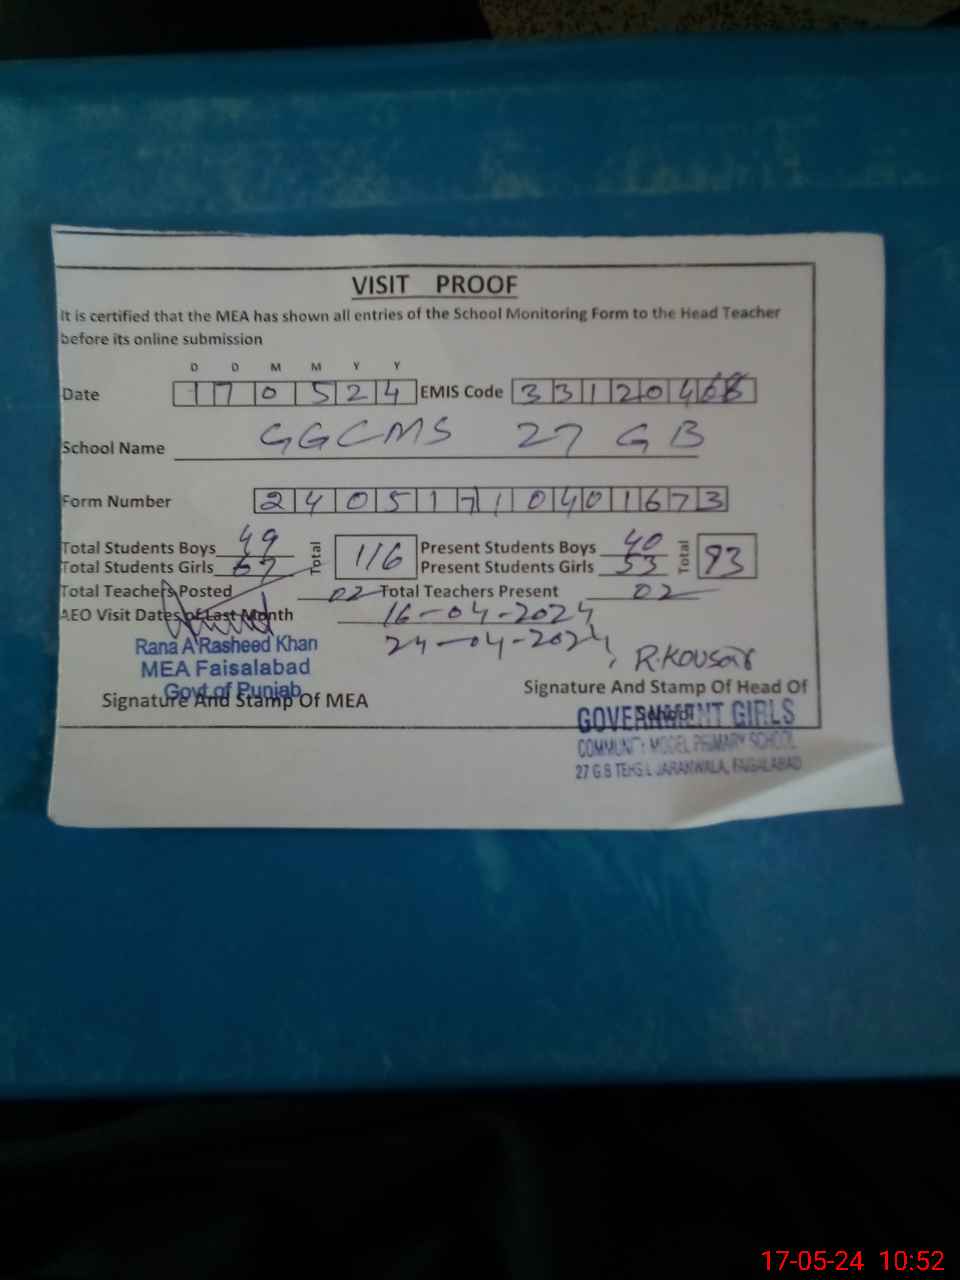 VISIT PROOF
It is certified that the MEA has shown all entries of the School Monitoring Form to the Head Teacher
before its online submission
D D M M Y Y
Date 170524 EMIS Code 331204
School Name GGCMS 27 GB
Form Number 24051710401673
Total Students Boys 49 Total 116 Present Students Boys 40 Total 93
Total Students Girls 67 Present Students Girls 53
Total Teachers Posted 02 Total Teachers Present 02
AEO Visit Dates of Last Month 16-04-2024
24-04-2024
Rana A Rasheed Khan
MEA Faisalabad
Govt of Punjab
Signature And Stamp Of MEA
R.Kousar
Signature And Stamp Of Head Of
School
GOVERNMENT GIRLS
COMMUNITY MODEL PRIMARY SCHOOL
27 G.B TEHSIL JARANWALA, FAISALABAD
17-05-24 10:52